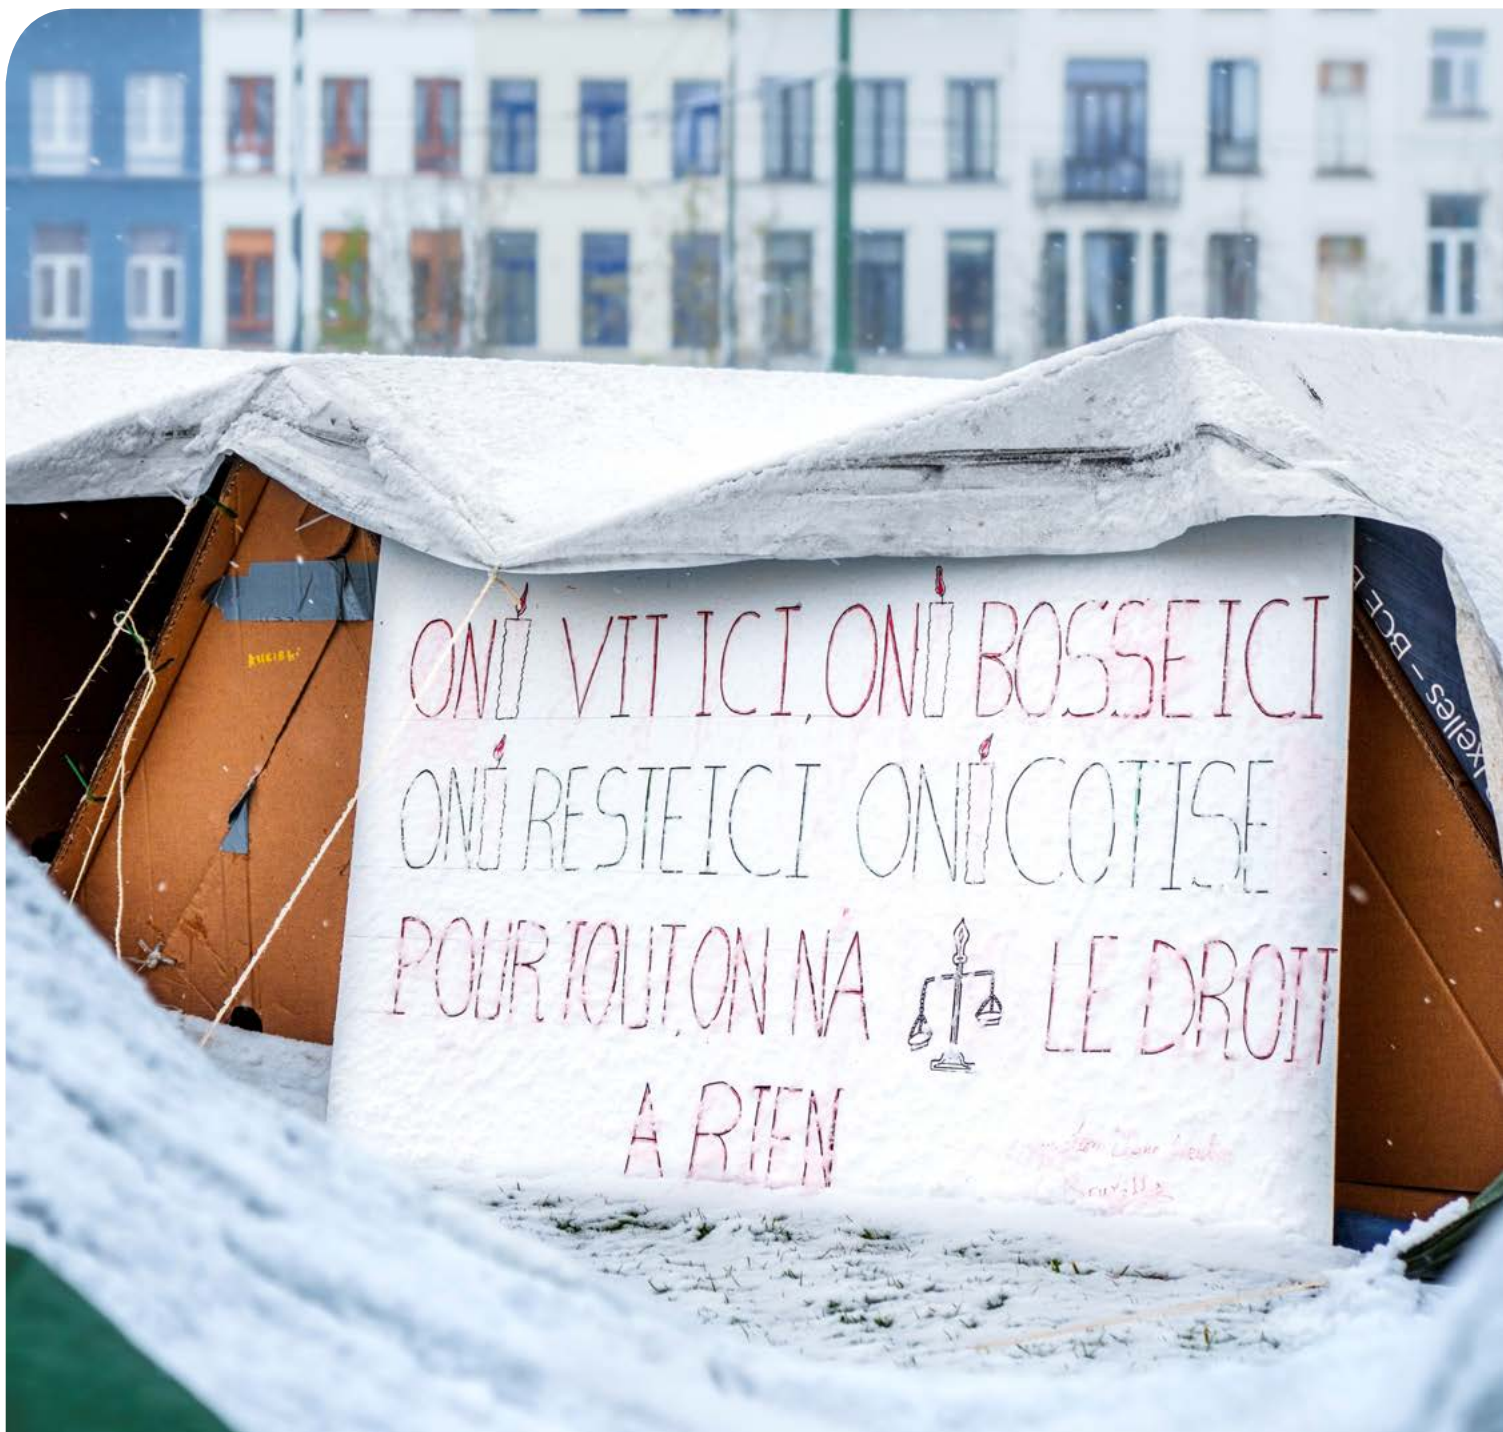 ON VIT ICI, ON BOSSE ICI
ON RESTE ICI ON COTISE
POUR TOUT, ON N'A LE DROIT
A RIEN
Bruxelles
Ixelles – BCE